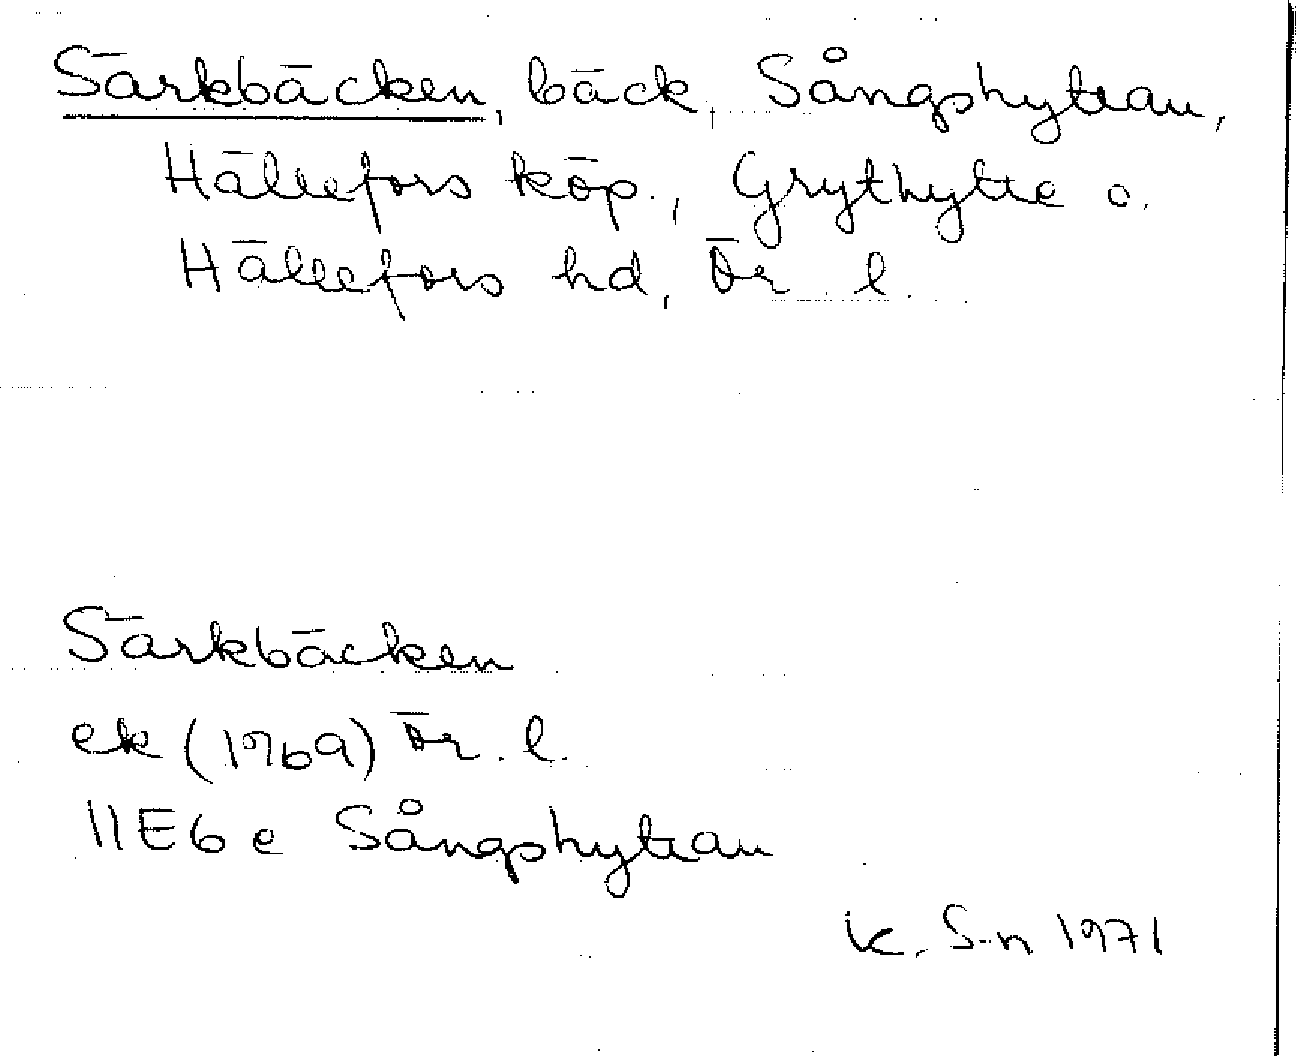 Särkbäcken, bäck, Sångshyttan,
Hällefors köp., Grythytte o.
Hällefors hd, Ör l.
Särkbäcken
ek (1969) Ör. l.
11E6e Sångshyttan
K. S-n 1971